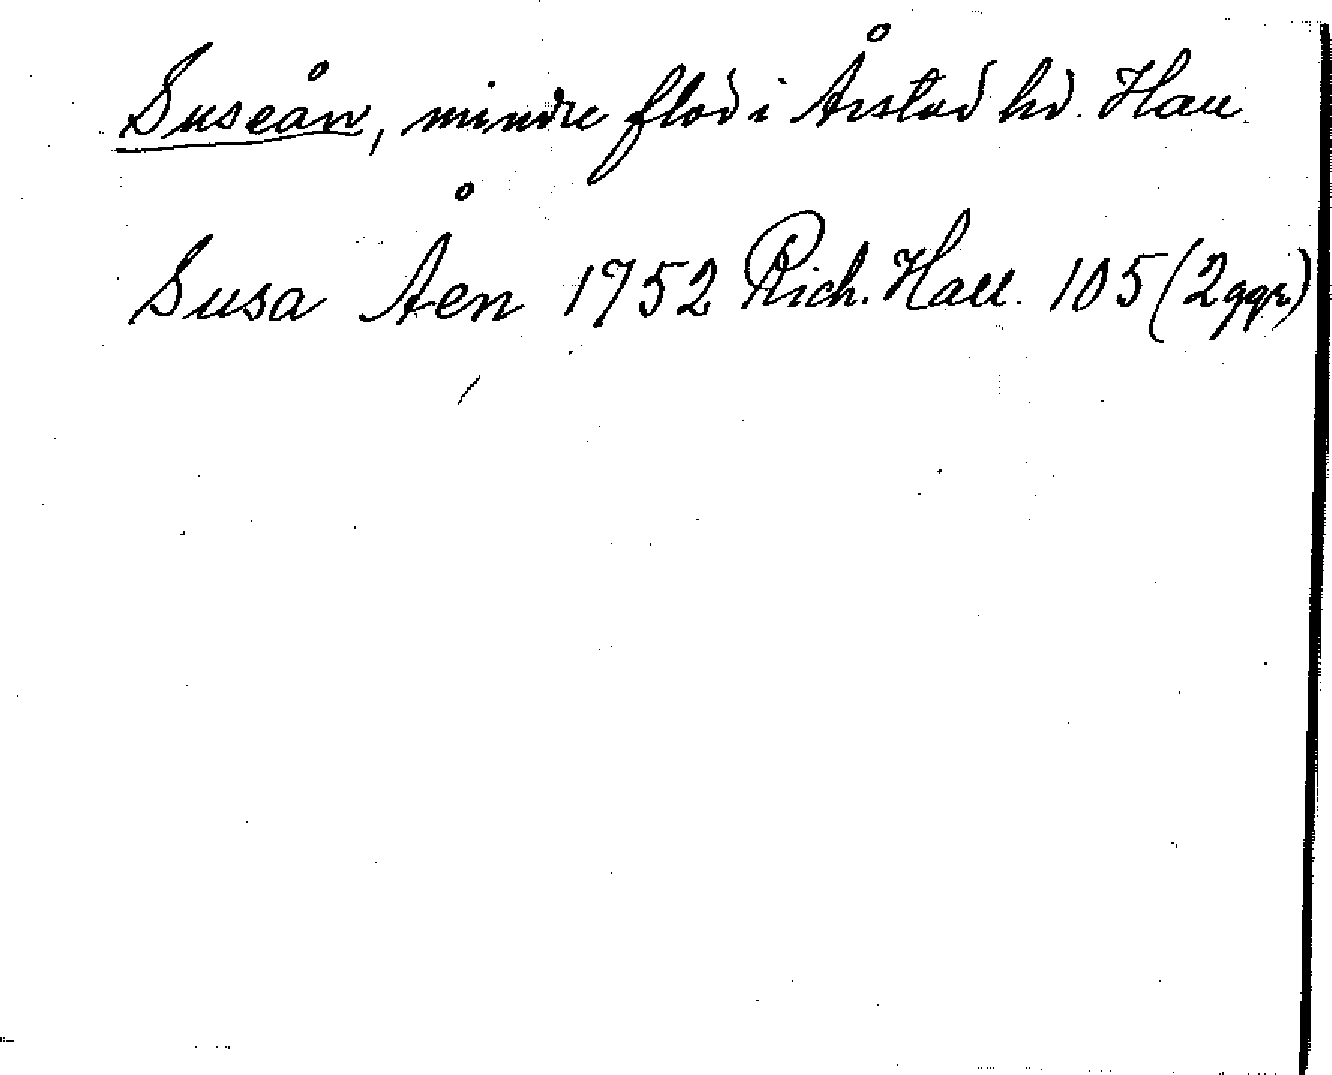 Suseån, mindre flod i Årstad hd. Hall
Susa Åen 1752 Rich. Hall. 105 (2 ggr)